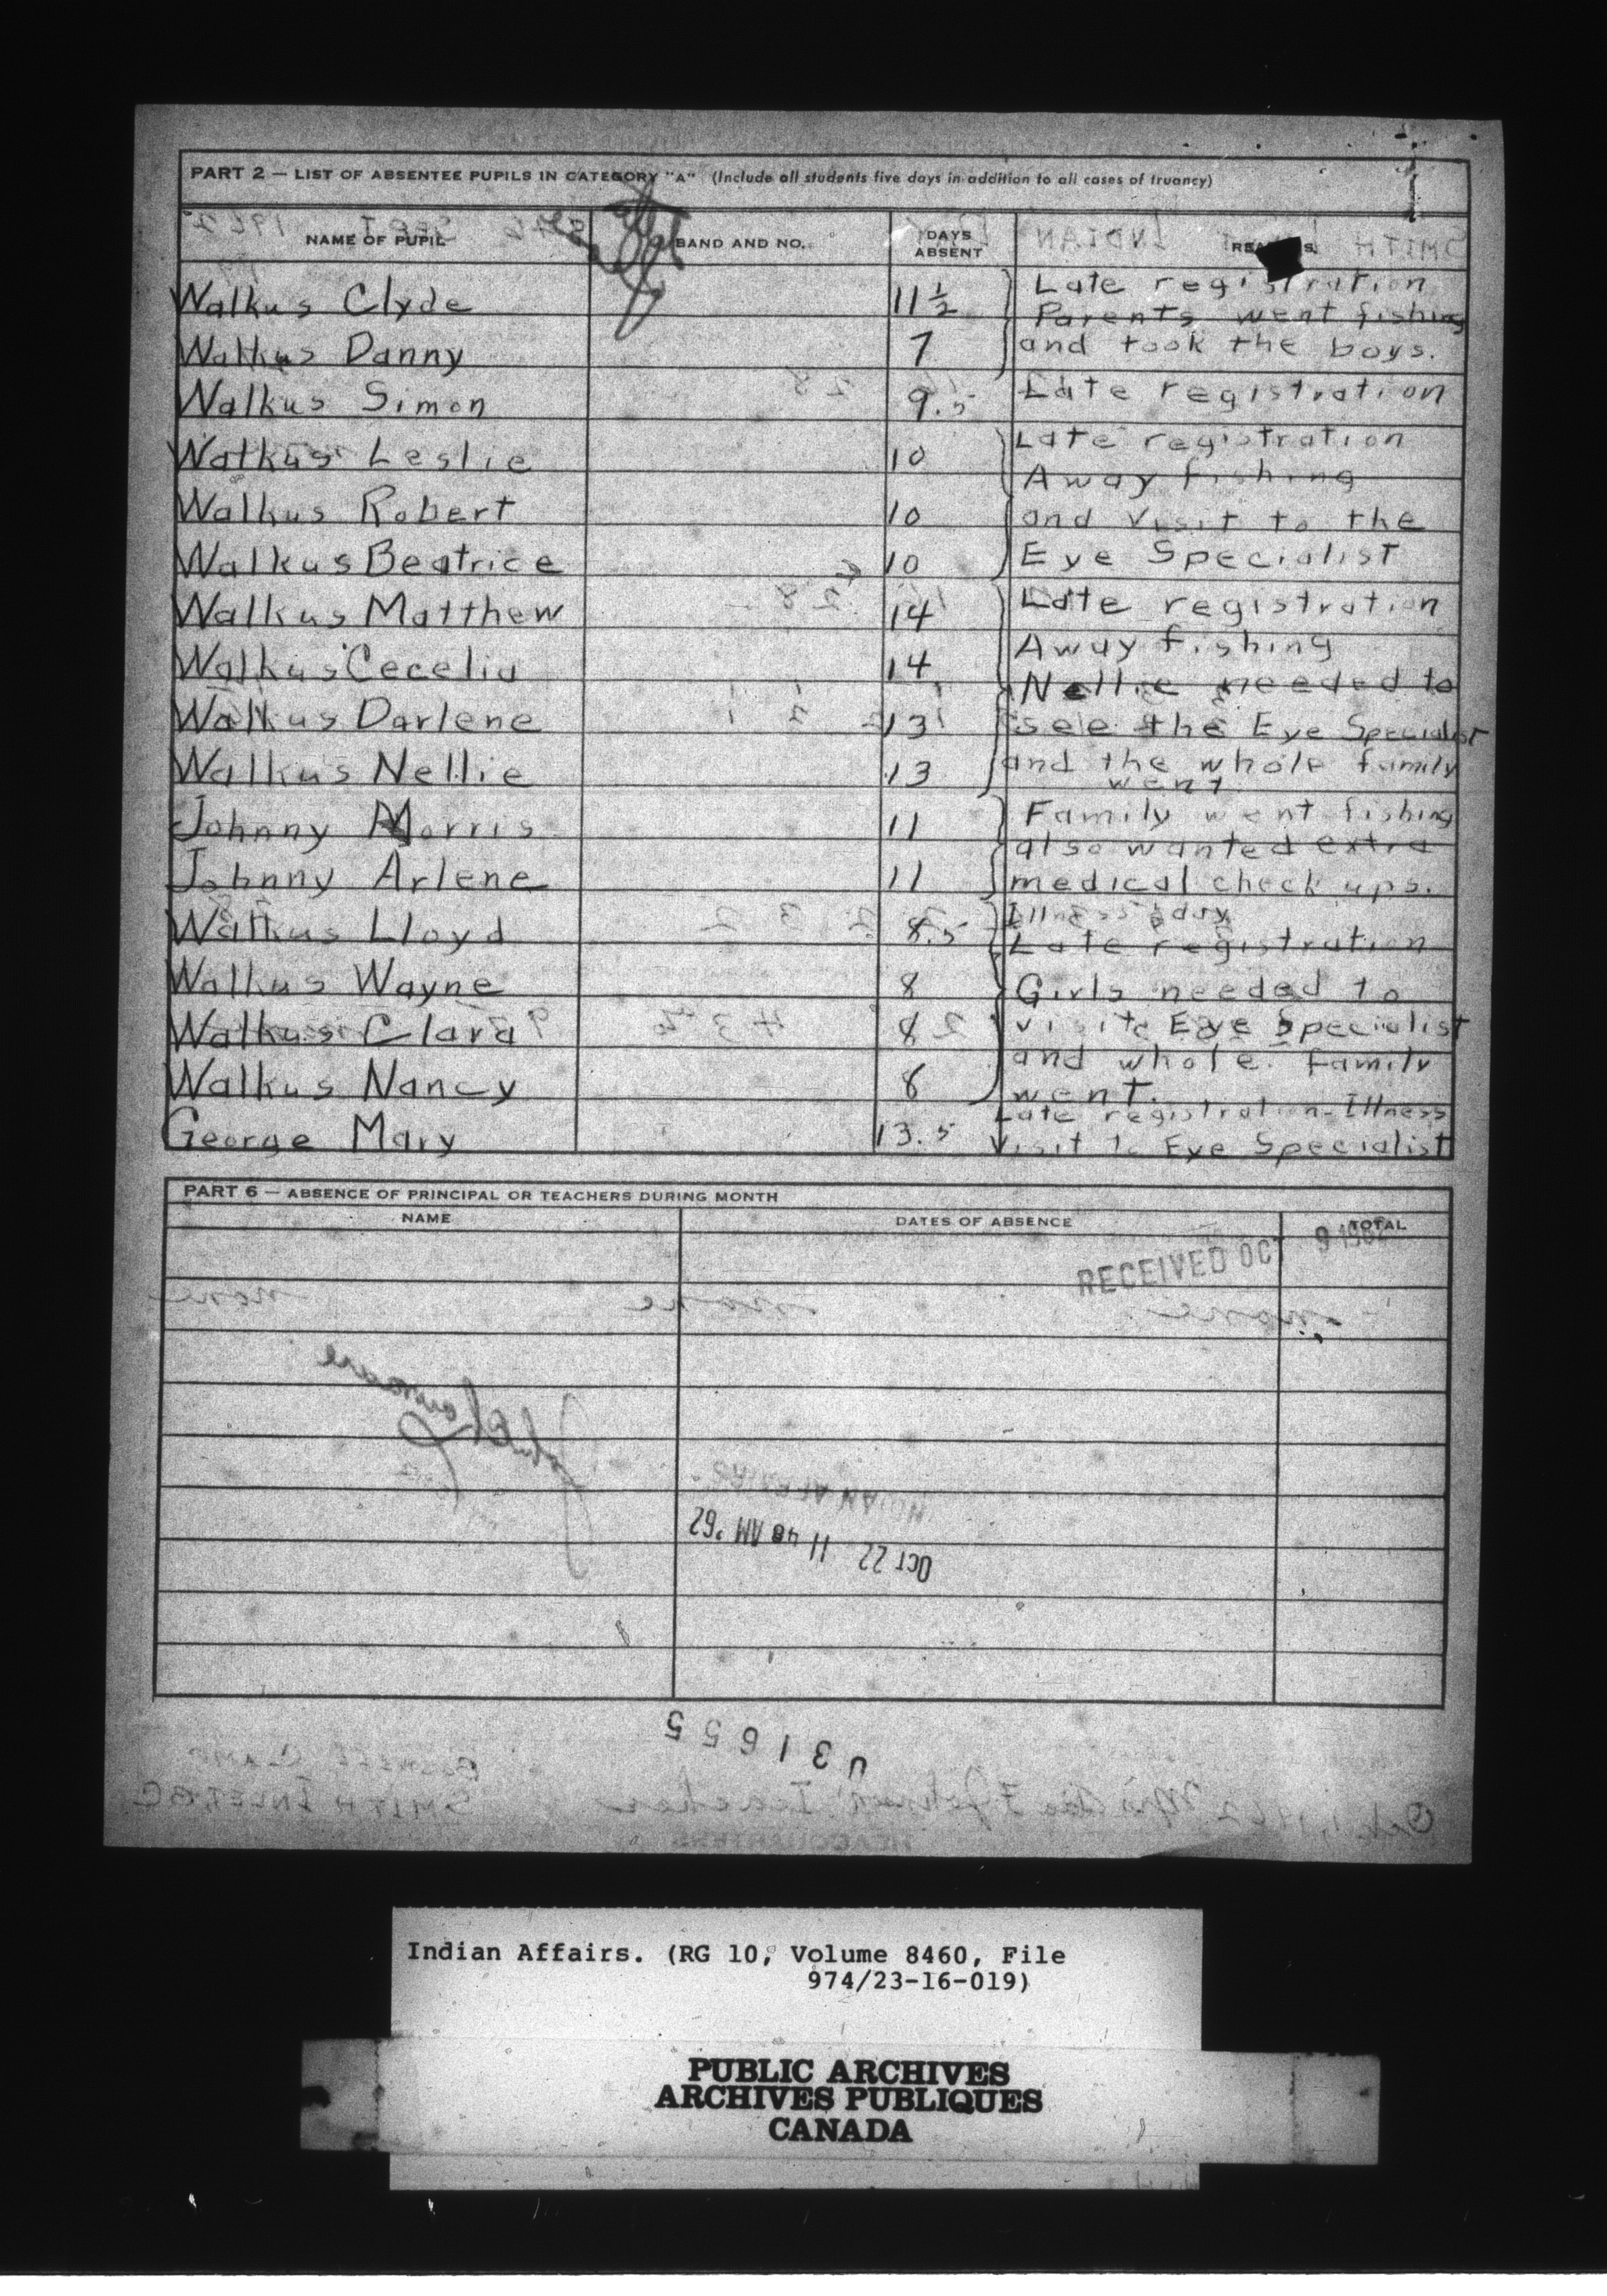 PART 2 — LIST OF ABSENTEE PUPILS IN CATEGORY "A" (Include all students five days in addition to all cases of truancy)
NAME OF PUPIL BAND AND NO. DAYS ABSENT REASONS
Walkus Clyde 11 ½ Late registration
Parents went fishing
Walkus Danny 7 and took the boys.
Walkus Simon 9.5 Late registration
Walkus Leslie 10 Late registration
Away fishing
Walkus Robert 10 and visit to the
Walkus Beatrice 10 Eye Specialist
Walkus Matthew 14 Late registration
Away fishing
Walkus Cecelia 14 Nellie needed to
Walkus Darlene 13 see the Eye Specialist
Walkus Nellie 13 and the whole family
went
Johnny Morris 11 Family went fishing
also wanted extra
Johnny Arlene 11 medical check ups.
Walkus Lloyd 8.5 Illness ½ day
Late registration
Walkus Wayne 8 Girls needed to
Walkus Clara 8 visit Eye Specialist
and whole family
Walkus Nancy 8 went.
George Mary 13.5 Late registration - Illness
Visit to Eye Specialist
PART 6 — ABSENCE OF PRINCIPAL OR TEACHERS DURING MONTH
NAME DATES OF ABSENCE TOTAL
RECEIVED OCT 9 1962
INDIAN AFFAIRS
OCT 22 11 48 AM '62
031655
HEADQUARTERS
Indian Affairs. (RG 10, Volume 8460, File
974/23-16-019)
PUBLIC ARCHIVES
ARCHIVES PUBLIQUES
CANADA